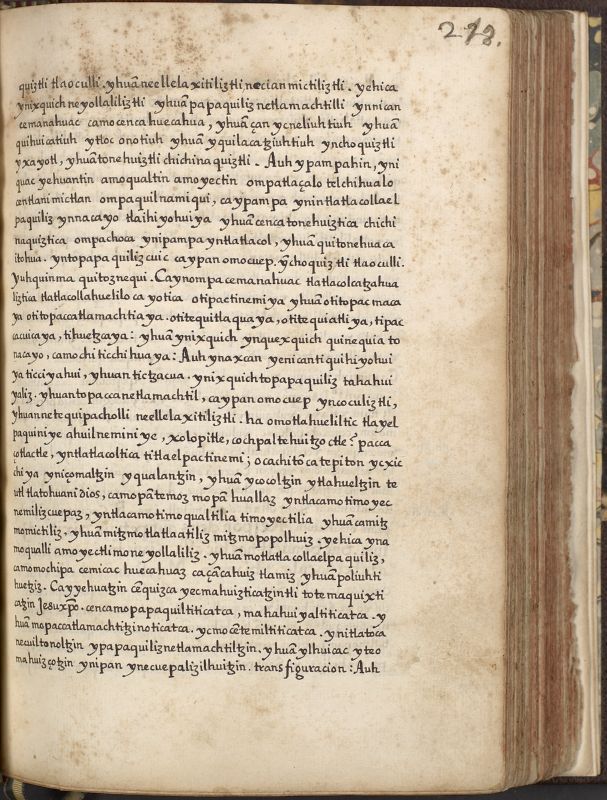 218.
quiztli tlaoculli. yhuã neellelaxitiliztli necianmictiliztli. yehica
ynixquich neyollaliliztli yhuã papaquiliz netlamachtilli ynnican
cemanahuac camo cenca huecahua, yhuã çan ycneliuhtiuh yhuã
quihuicatiuh ytloc onotiuh yhuã yquilacatziuhtiuh yn choquiztli
yxayotl, yhuã tonehuiztli chichinaquiztli. Auh ypampahin, yni
quac yehuantin amo qualtin amo yectin ompa tlaçalo telchihualo
centlani mictlan ompa quilnamiqui, ca ypampa ynin tlatlacollael
paquiliz ynnacayo tlaihiyohuiya yhuã cenca tonehuiztica chichi
naquiztica ompa choca ynipampa yntlatlacol, yhuã quitonehuaca
itohua. yntopapaquilizcuic caypan omocuep. ỹ choquiztli tlaoculli.
yuhquinma quitoznequi. Caynompa cemanahuac tlatlacolcatzahua
liztica tlatlacollahuelilocayotica otipactinemiya yhuã otitopacmaca
ya otitopaccatlamachtiaya. otitequitlaquaya, otitequiatliya, tipac
cacuicaya, tihuetzcaya: yhuã ynixquich ynquexquich quinequia to
nacayo, camochi ticchihuaya: Auh ynaxcan yenican tiquihiyohui
ya ticciyahui, yhuan tictzacua. ynixquich topapaquiliz tahahui
yaliz. yhuan topaccanetlamachtil, caypan omocuep yncoculiztli,
yhuan netequipacholli neellelaxitiliztli. ha omotlahueliltic tlayel
paquiniye ahuilneminiye, xolopitle, cochpaltehuitzoctle? pacca
cotlactle, yntlatlacoltica titlaelpactinemi; o cachitõca tepiton ycxic
chiya yniçomaltzin yqualantzin, yhuã ycocoltzin ytlahueltzin te
utl tlatohuani dios, camo pãtemoz mopã huallaz yntlacamo timoyec
nemilizcuepaz, yntlacamo timoqualtilia timoyectilia yhuã camitz
momictiliz. yhuã mitzmotlatlaatiliz mitzmopopolhuiz. yehica yna
moqualli amoyectli moneyollaliliz. yhuã motlatlacollaelpaquiliz,
camo mochipa cemicac huecahuaz caçãcahuiz tlamiz yhuã poliuhti
huetziz. Cayyehuatzin cẽquizca yecmahuizticatzintli totemaquixti
catzin Jesuxp̃o. cenca mopapaquiltiticatca, mahahuiyaltiticatca. y
huã mopaccatlamachtitzinoticatca. ycmocẽtemiltiticatca. ynitlatoca
necuiltonoltzin ypapaquiliznetlamachtiltzin. yhuã ylhuicac yteo
mahuizçotzin ynipan ynecuepalizilhuitzin. transfiguracion: Auh